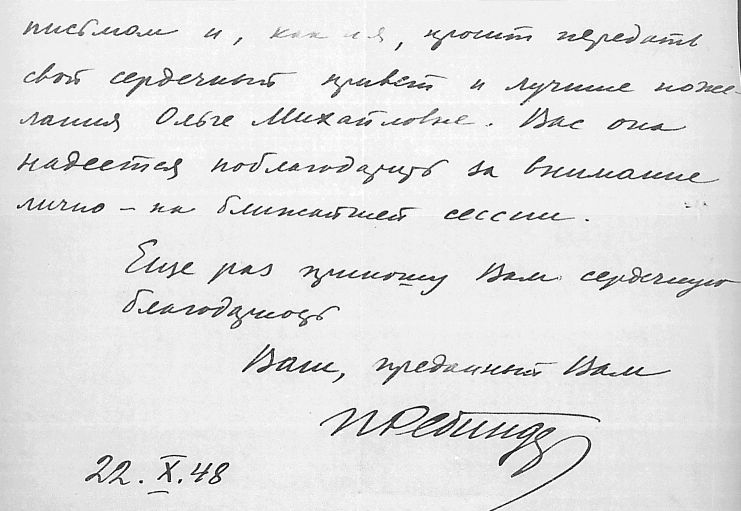 письмом и, как и я, просит передать
свой сердечный привет и лучшие поже-
лания Ольге Михайловне. Вас она
надеется поблагодарить за внимание
лично – на ближайшей сессии.
Еще раз приношу Вам сердечную
благодарность
Ваш, преданный Вам
ПРебиндер
22.X.48